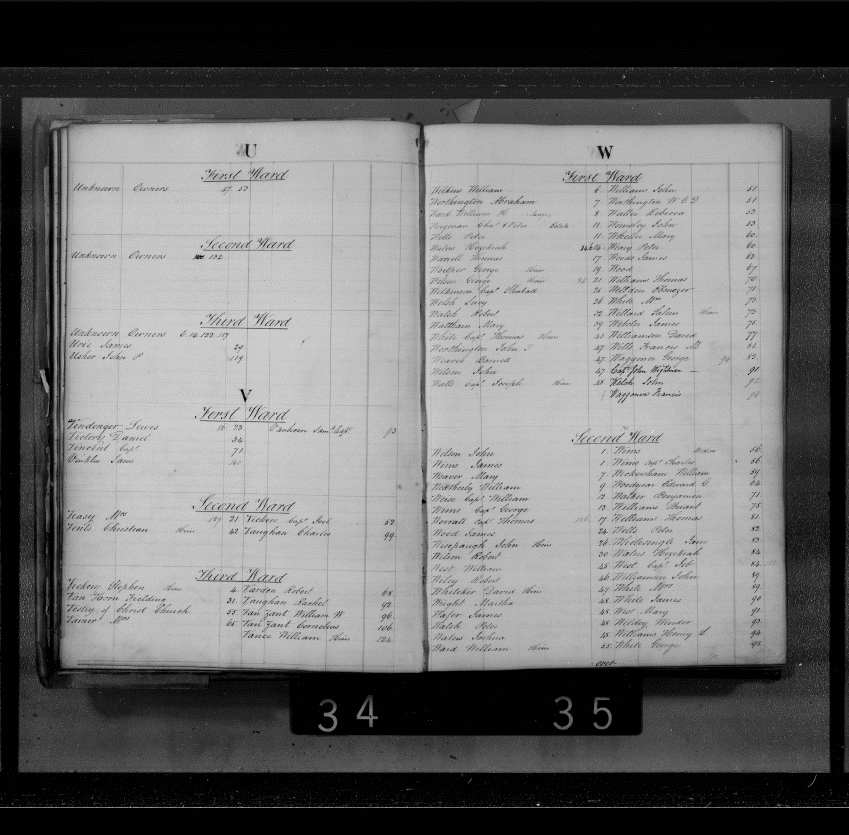 U
First Ward
Unknown Owners 47 53
Second Ward
Unknown Owners 132
Third Ward
Unknown Owners 6 14 122 117
Uric James 29
Usher John P 119
V
First Ward
Vindenger Lewis 56 73 Vanhorn Saml Capt 93
Victory Daniel 34
Vincent Capt 71
Vinkle Jams
Second Ward
Veasey Mrs 21 Vickers Capt Joel 52
Vents Christian Heirs 42 Vaughan Charles 99
Third Ward
Vickers Stephen Heirs 4 Varden Robert 68
Van Horn Fielding 31 Vaughan Rachel 92
Vestry of Christ Church 58 Van Zant William W 96
Vainer Mrs 65 Van Zant Cornelius 106
Vance William Heirs 124
W
First Ward
Wilkins William 6 Williams John 51
Worthington Abraham 7 Worthington W G D 51
Ward William H 8 Waller Rebecca 53
Wegman Chas & Peter Estate 11 Wemsley John 53
Wells Peter 11 Wheeler Mary 60
Waters Hezekiah 14 Weary Peter 60
Worrell Thomas 17 Woods James 63
Woelper George Heirs 19 Wood 67
Welsh George Heirs 21 Williams Thomas 70
Wilkinson Capt Shuball 25 Weldden Ebenezer 71
Welsh Levy 26 White Mrs 73
Walsh Robert 32 Wellard Salem Heirs 73
Waltham Mary 39 Webster James 75
White Capt Thomas Heirs 41 Williamson David 77
Worthington John T 47 Wills Francis M 81
Weaver Daniel 47 Waggoner George 83
Wilson John 47 Capt John Wightman 91
Watts Capt Joseph Heirs 48 Welsh John 92
Waggoner Francis
Second Ward
Wilson John 1 Wims Widow 56
Wims James 1 Wims Capt Charles 56
Weaver Mary 7 Wickersham William 59
Weatherly William 9 Woodyear Edward G 64
Weise Capt William 12 Walker Benjamin 71
Wims Capt George 13 Williams Briant 75
Worrall Capt Thomas 17 Williams Thomas 81
Wood James 24 Wells Peter 82
Wisepaugh John Heirs 26 Wholesingle Jams 83
Wilson Robert 30 Waters Hezekiah 84
West William 45 West Capt Job 84
Wiley Robert 46 Williamson John 89
Whitaker David Heirs 47 White Mrs 89
Wright Martha 48 White James 90
Wafer James 48 West Mary 91
Walsh Peter 48 Welday Wender 93
Waters Joshua 48 Williams Henry L 94
Ward William Heirs 55 White George 95
over
34 35